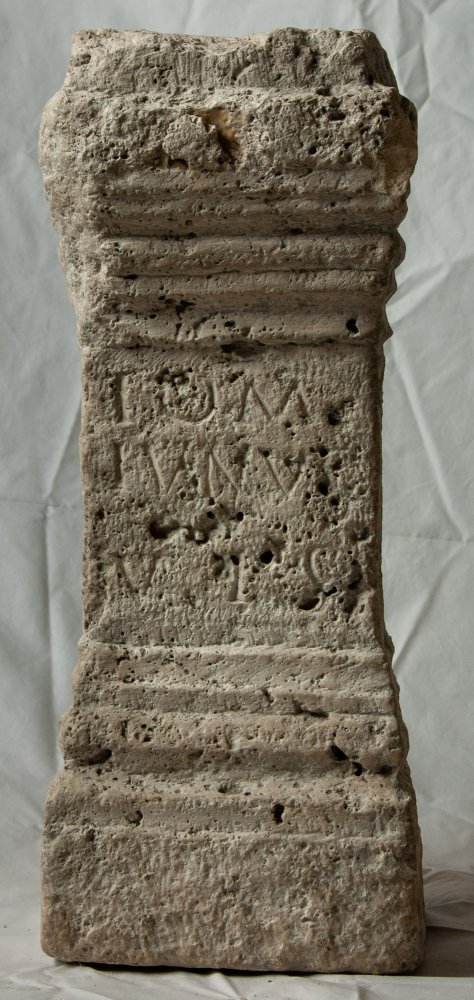 I O M
IVNV
V L S